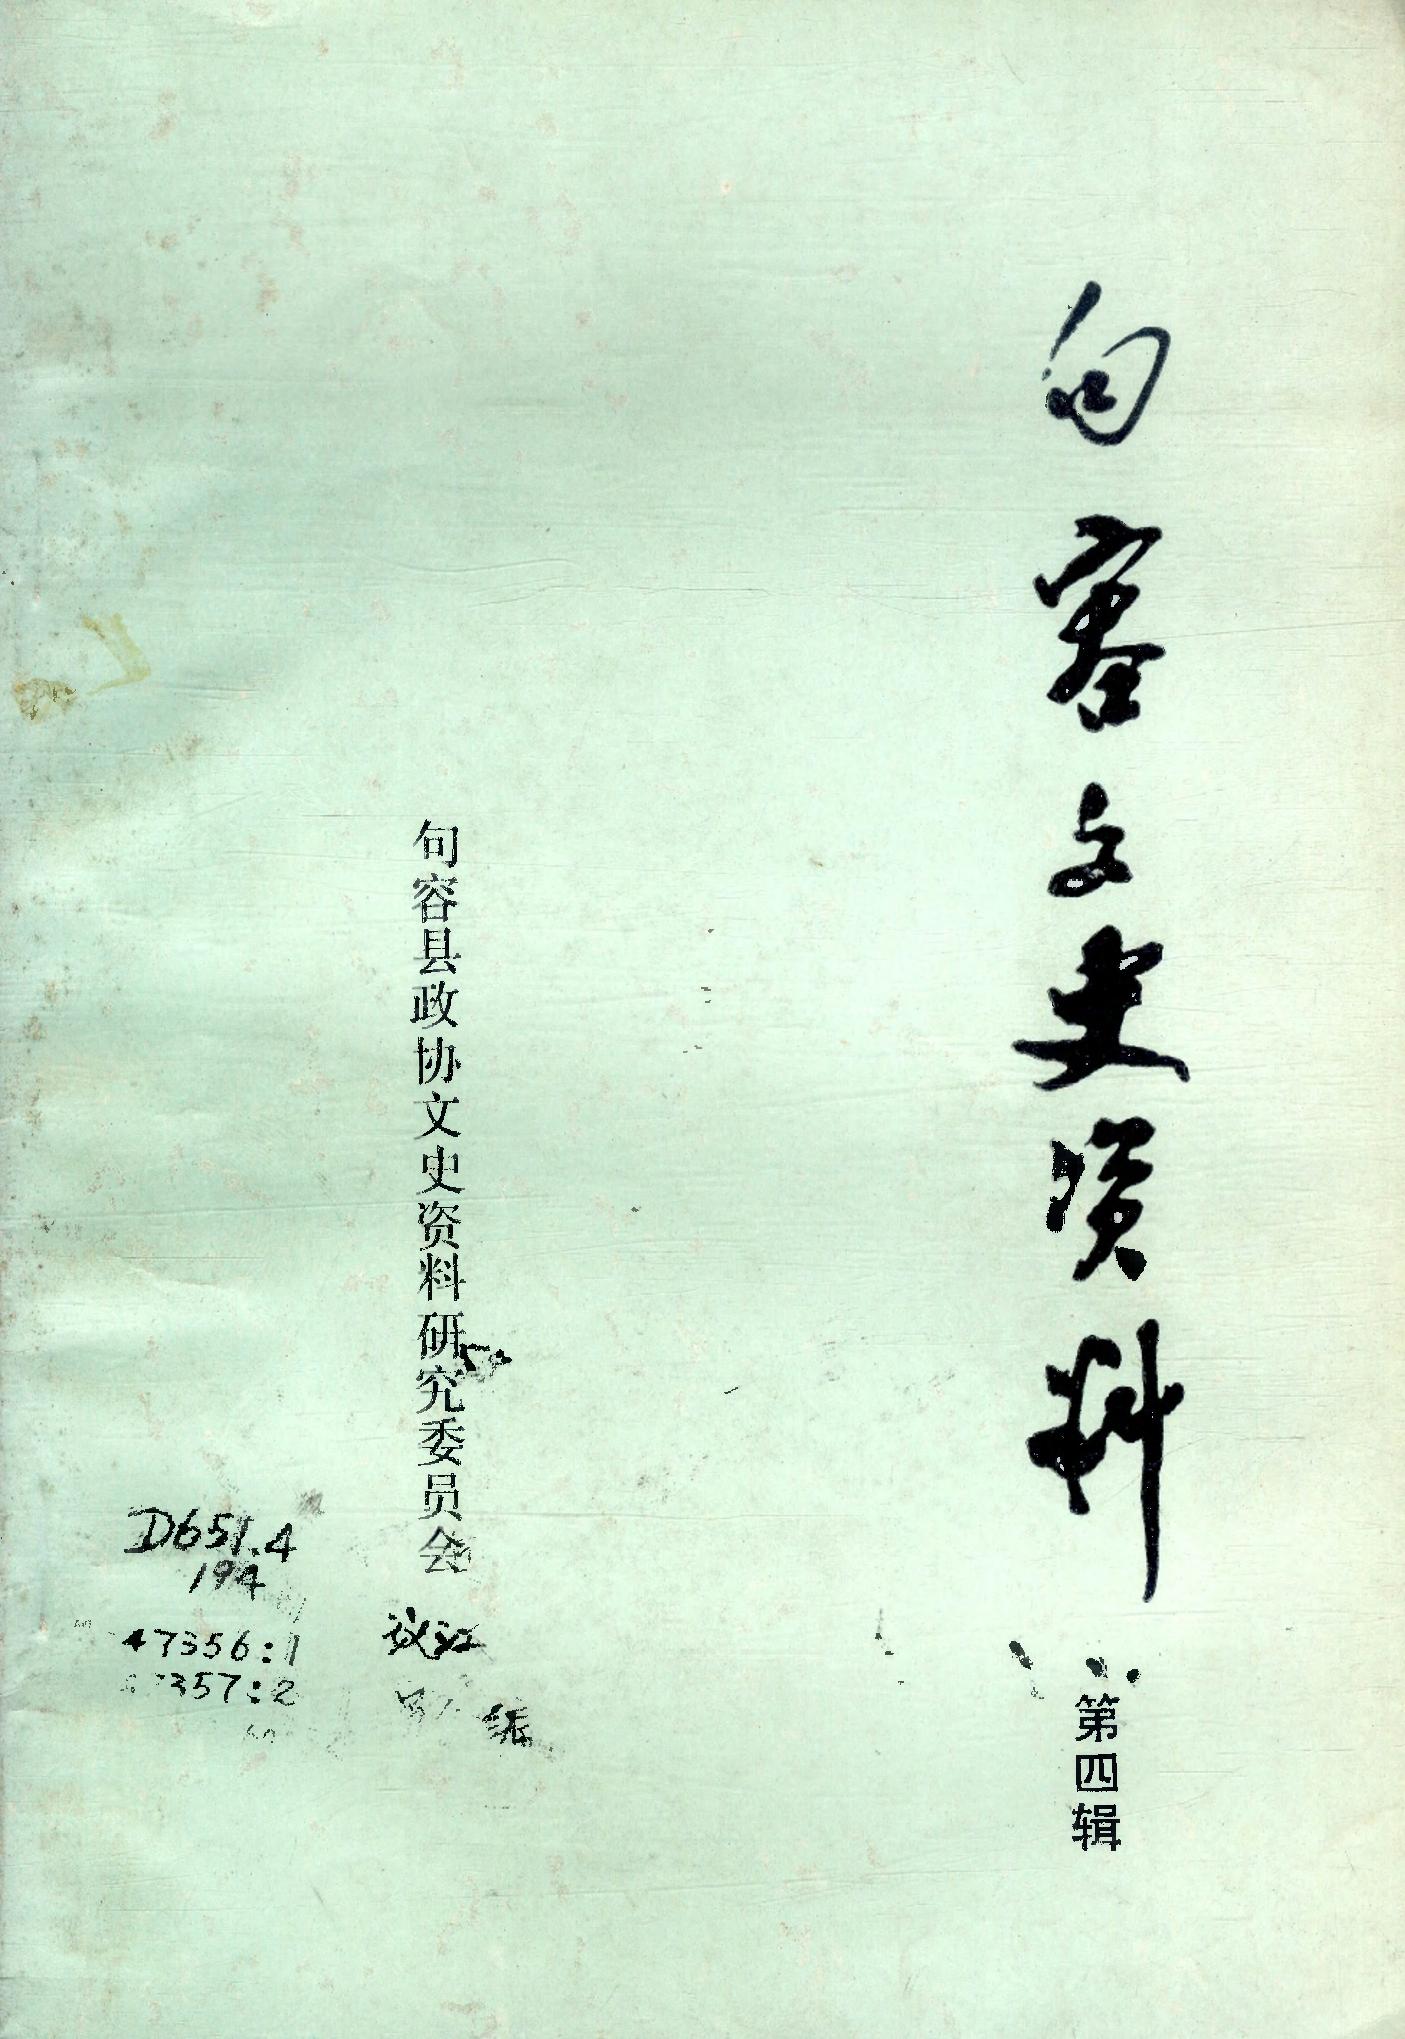 句容文史资料
第四辑
句容县政协文史资料研究委员会
D651.4
194
47356:1
357:2